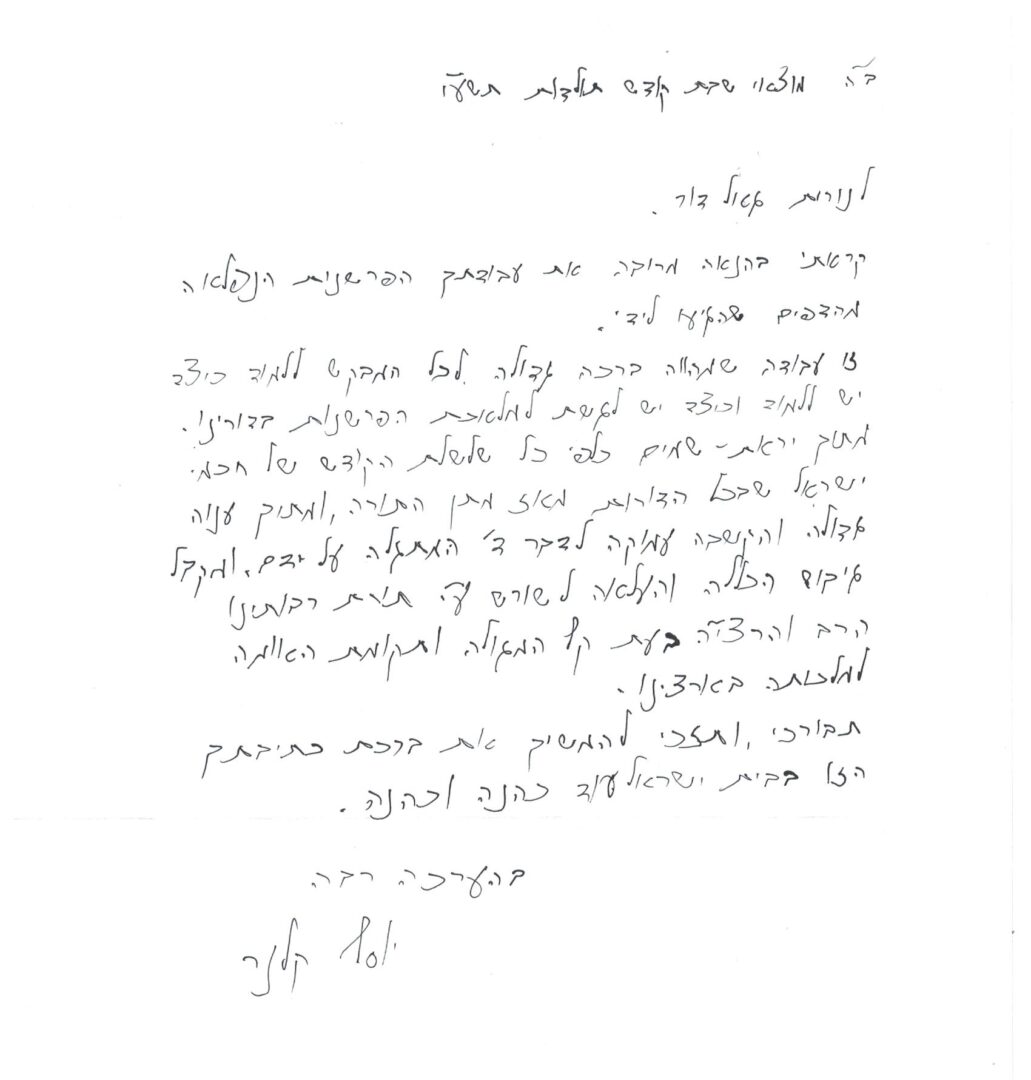 ב"ה מוצאי שבת קודש תולדות תשע"ו
לנורית גאולדור.
קראתי בהנאה מרובה את עבודתך הפרשנית הנפלאה
מהדפים שהגיעו לידי.
זו עבודה שמהווה ברכה גדולה לכל המבקש ללמוד כיצד
יש ללמוד וכיצד יש לגשת למלאכת הפרשנות בדורינו.
מתוך יראת-שמים כלפי כל שלשלת הקודש של חכמי
ישראל שבכל הדורות מאז מתן התורה, ומתוך ענוה
גדולה והקשבה עמוקה לדבר ד' המתגלה על ידם, ומקבל
גיבוש הכללה והעלאה לשורש ע"י תורת רבותינו
הרב והרצי"ה בעת קץ המגולה ותקומת האומה
למלכותה בארצינו.
תבורכי, ותזכי להמשיך את ברכת כתיבתך
הזו בבית ישראל עוד כהנה וכהנה.
בהערכה רבה
יוסף קלנר